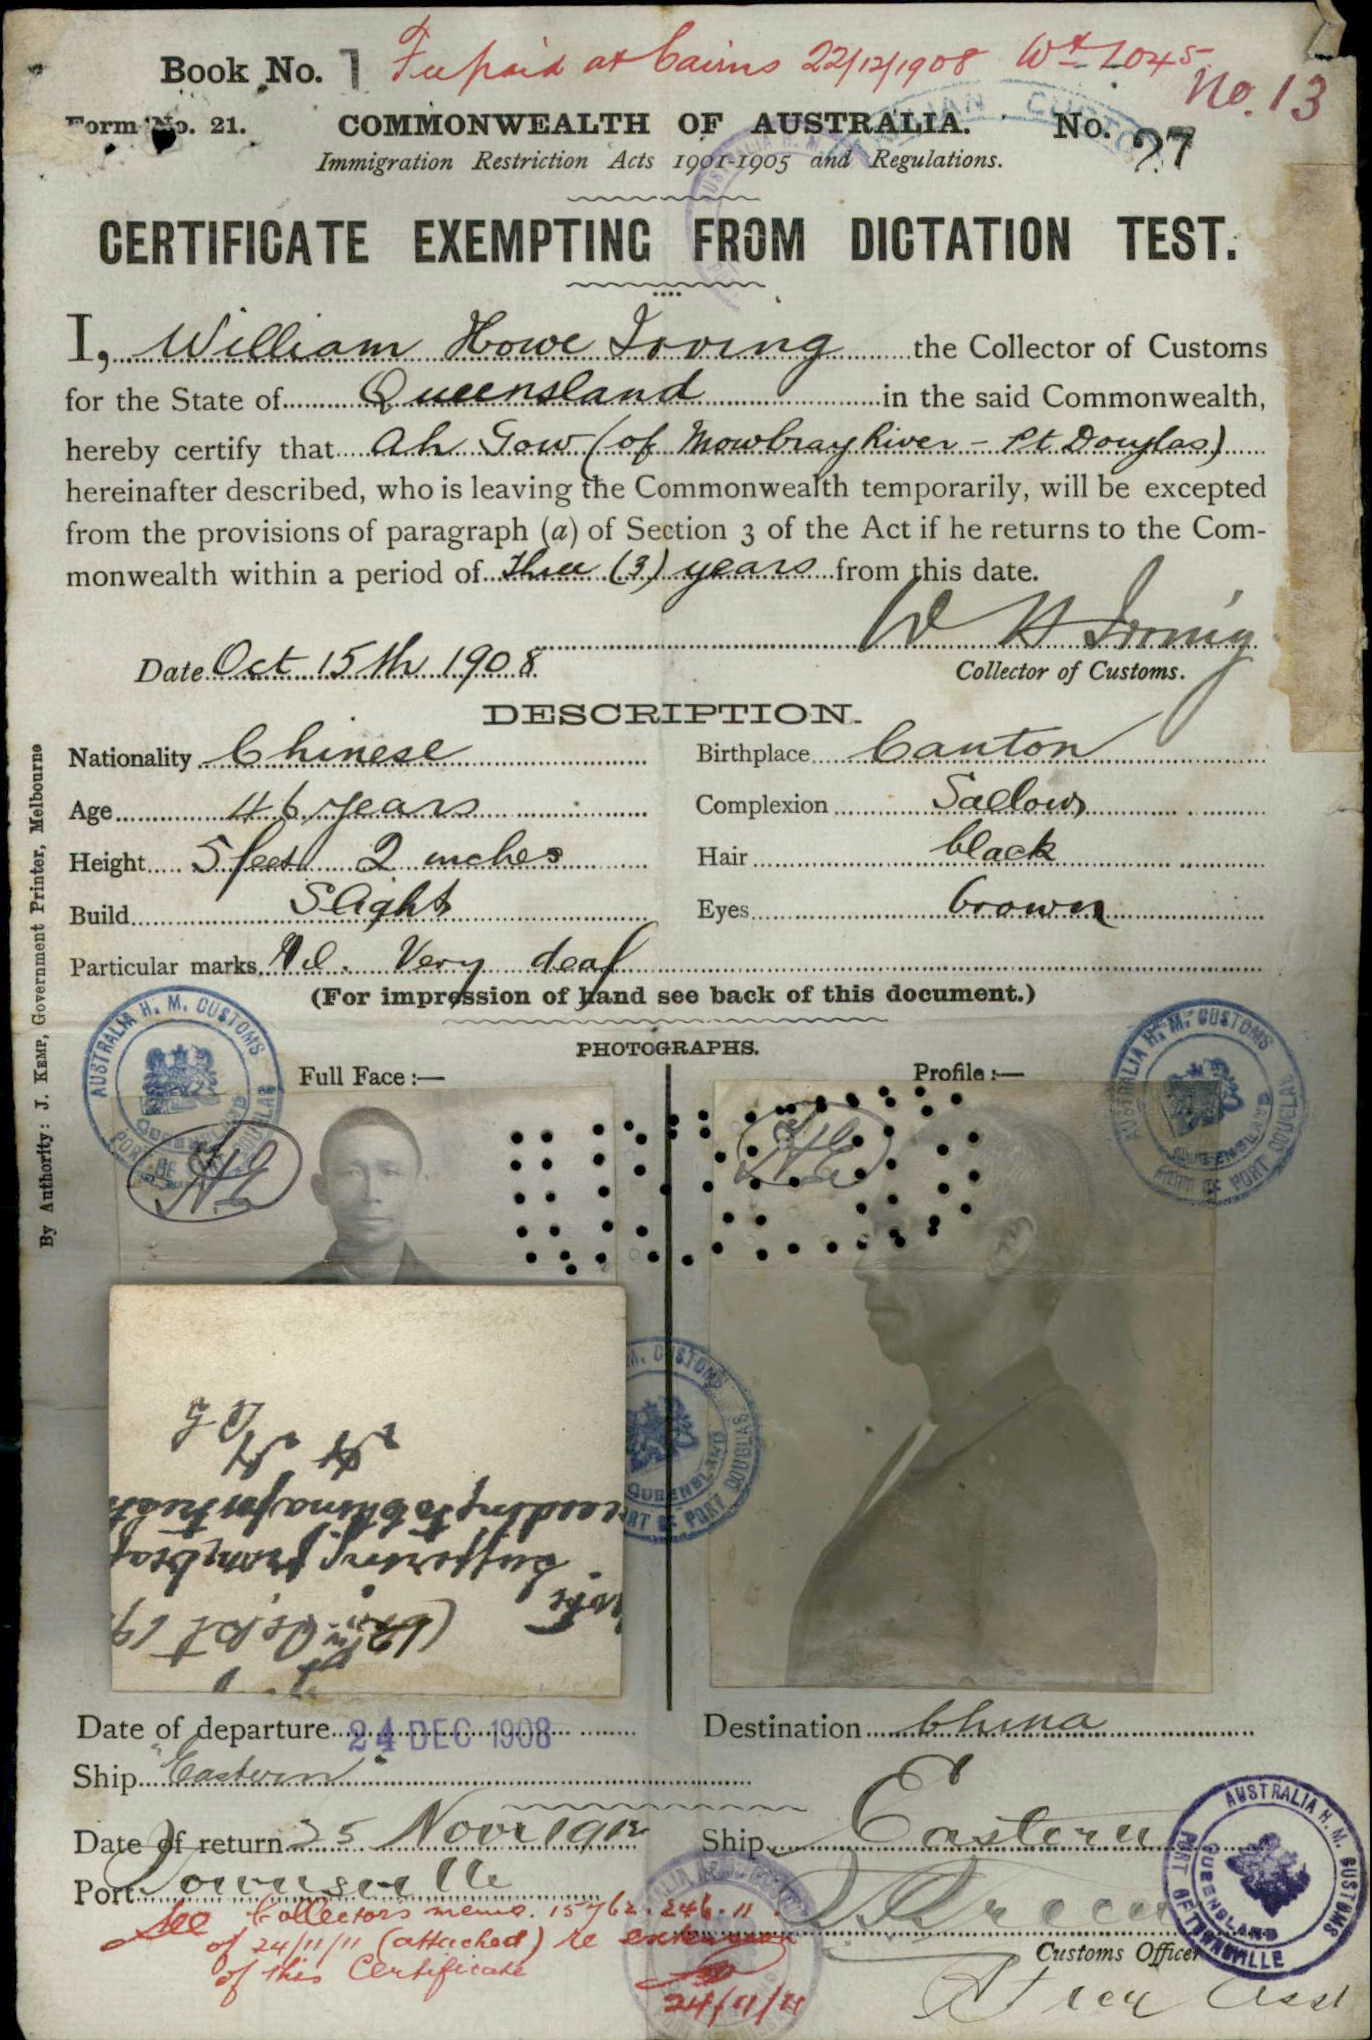 Book No. 1 Fee paid at Cairns 22/12/1908 Wt 2045
No. 13
Form No. 21. COMMONWEALTH OF AUSTRALIA. No. 27
Immigration Restriction Acts 1901-1905 and Regulations.
CERTIFICATE EXEMPTING FROM DICTATION TEST.
I, William Howe Irving the Collector of Customs
for the State of Queensland in the said Commonwealth,
hereby certify that Ah Gow (of Mowbray River - Pt Douglas)
hereinafter described, who is leaving the Commonwealth temporarily, will be excepted
from the provisions of paragraph (a) of Section 3 of the Act if he returns to the Com-
monwealth within a period of three (3) years from this date.
W H Irving
Date Oct 15th 1908 Collector of Customs.
DESCRIPTION.
Nationality Chinese Birthplace Canton
Age 46 years Complexion Sallow
Height 5 feet 2 inches Hair black
Build Slight Eyes brown
Particular marks Nil. Very deaf
(For impression of hand see back of this document.)
PHOTOGRAPHS.
Full Face :— Profile :—
AUSTRALIA H. M. CUSTOMS
QUEENSLAND
PORT OF PORT DOUGLAS
AUSTRALIA H. M. CUSTOMS
QUEENSLAND
PORT OF PORT DOUGLAS
M. CUSTOMS
QUEENSLAND
PORT OF PORT DOUGLAS
Suffering from
to China for
Date of departure 24 DEC 1908 Destination China
Ship "Eastern"
Date of return 25 Novr 1912 Ship Eastern
Port Townsville
See Collectors memo. 15762.246.11.
of 24/11/11 (attached) re extension
of this Certificate
24/11/11
Customs Officer
AUSTRALIA H. M. CUSTOMS
QUEENSLAND
PORT OF TOWNSVILLE
By Authority: J. KEMP, Government Printer, Melbourne